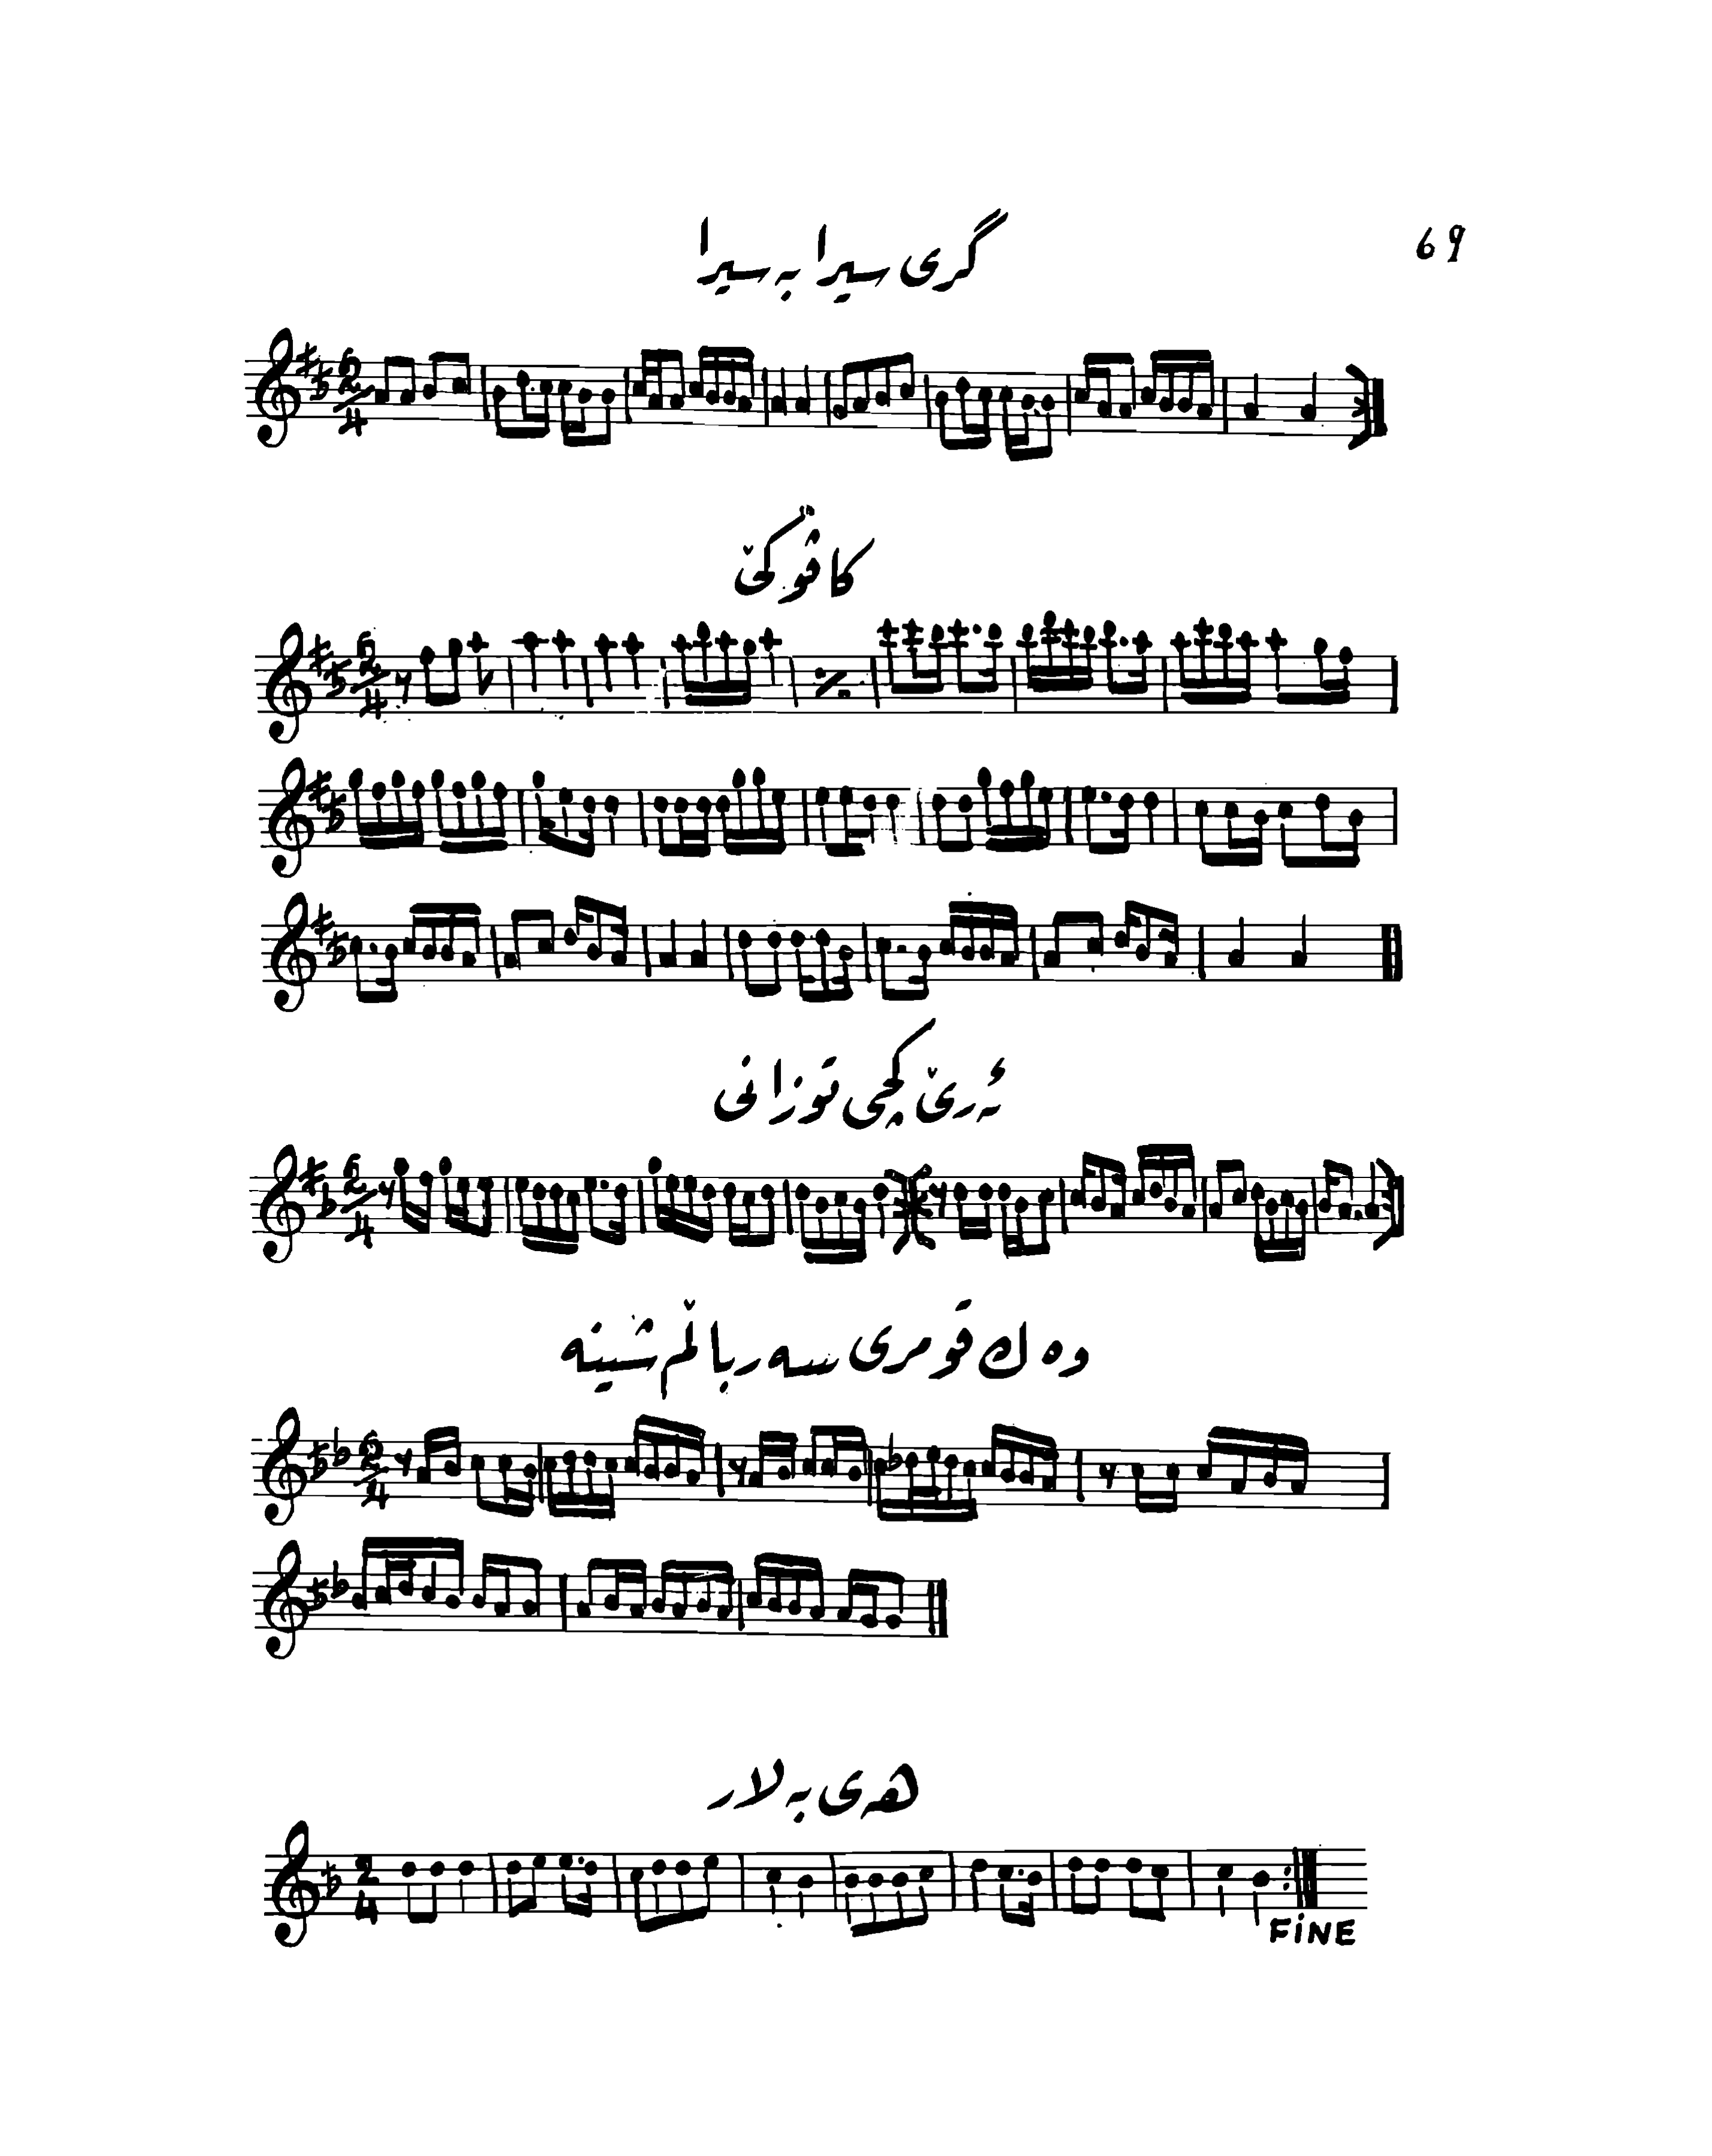 69
گری سیرا بە سیرا
کاڤۆکێ
ئەرێ کچی تۆزانی
وەك قومری سەربالم شینە
هەی بەلار
FINE